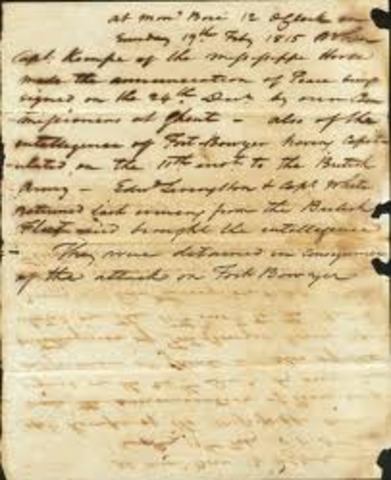 at Monr Boré 12 OClock on
Sunday 19th Feby 1815
Capt. Kempe of the Mississippi Horse
made the annunciation of Peace being
signed on the 24th Decr by our Com
missioners at Ghent - also of the
intelligence of Fort Bowyer having Capit
ulated on the 11th inst to the British
Army - Edwd Livingston & Capt White
returned last evening from the British
Fleet and brought the intelligence
- They were detained in consequence
of the attack on Fort Bowyer